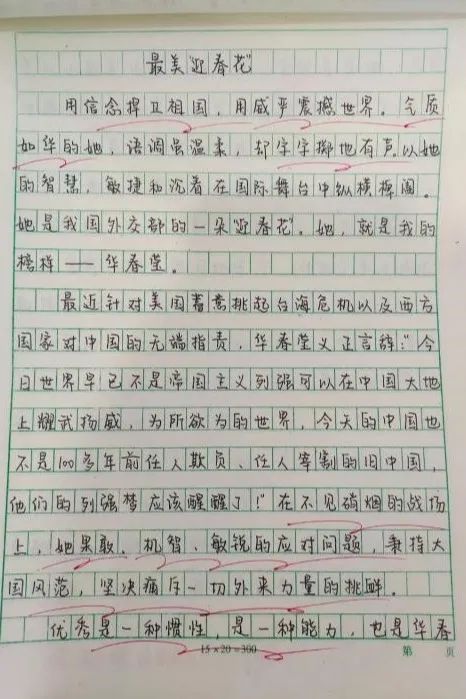 最美“迎春花”
用信念捍卫祖国，用威严震撼世界。气质
如华的她，语调虽温柔，却字字掷地有声。以她
的智慧，敏捷和沉着在国际舞台中纵横捭阖。
她是我国外交部的一朵“迎春花”。她，就是我的
榜样——华春莹。
最近针对美国蓄意挑起台海危机以及西方
国家对中国的无端指责，华春莹义正言辞：“今
日世界早已不是帝国主义列强可以在中国大地
上耀武扬威，为所欲为的世界，今天的中国也
不是100多年前任人欺负、任人宰割的旧中国，
他们的列强梦应该醒醒了！”在不见硝烟的战场
上，她果敢、机智、敏锐的应对问题，秉持大
国风范，坚决痛斥一切外来力量的挑衅。
优秀是一种惯性，是一种能力，也是华春
15×20=300 第 页